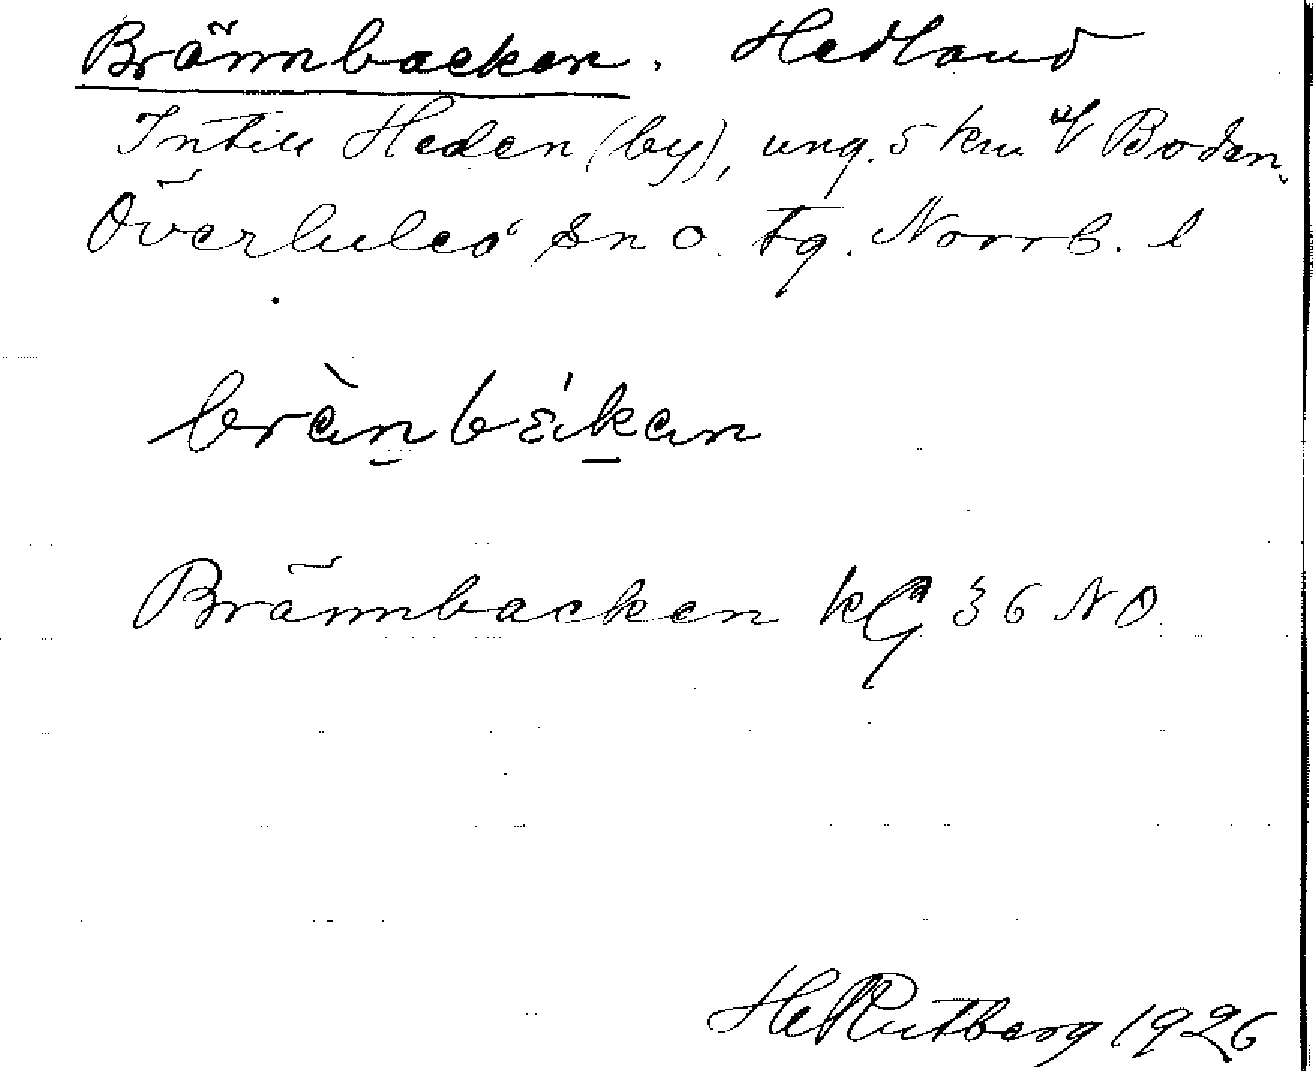 Brännbacken. Hedland
Intill Heden (by), ung. 5 km Boden.
Överluleå sn o. tg. Norrb. l
brànbákan
Brännbacken kG 36 NO
Rutberg 1926